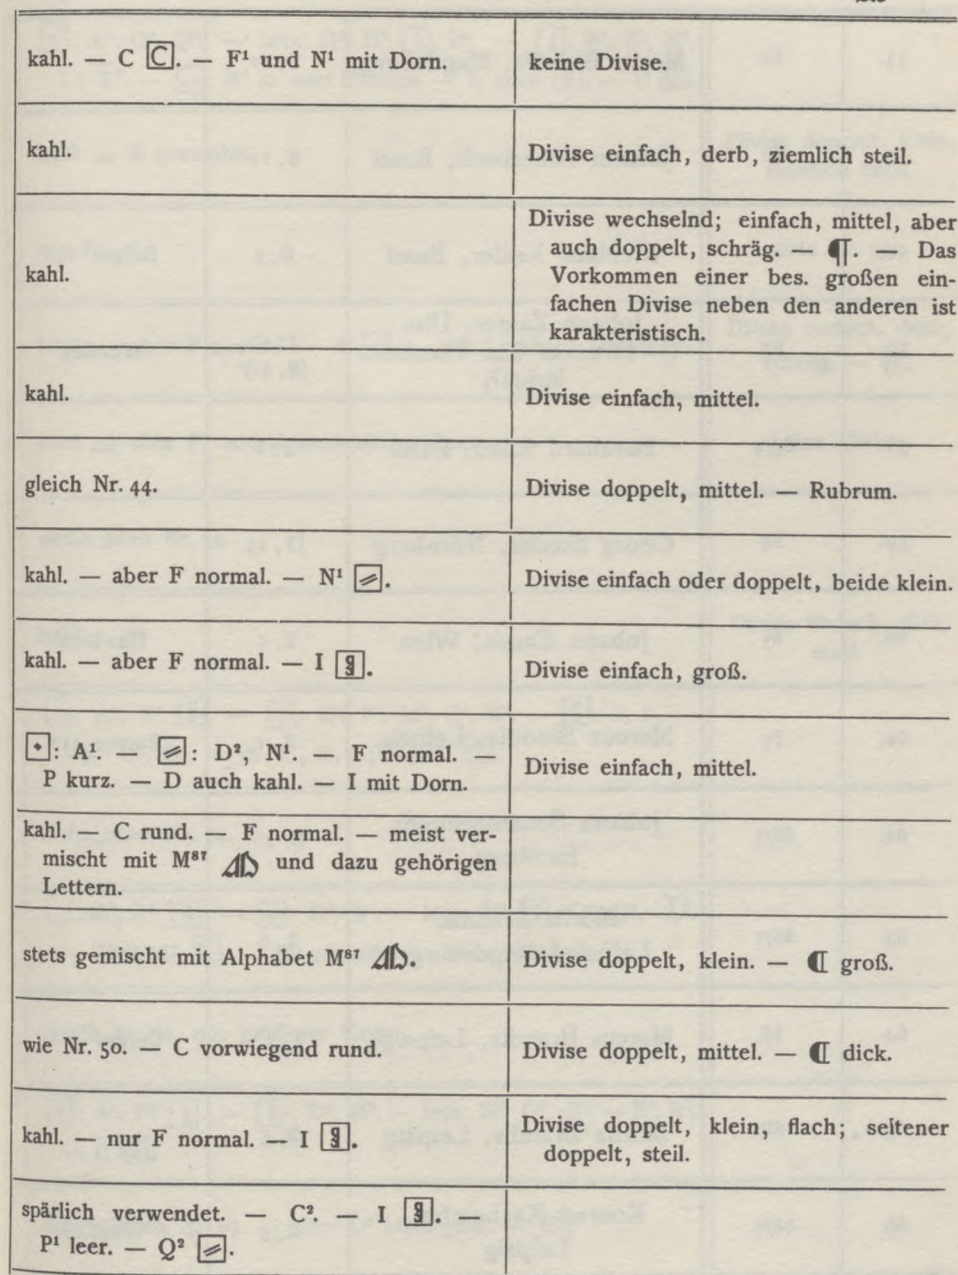 kahl. — C [C]. — F¹ und N¹ mit Dorn.
keine Divise.
kahl.
Divise einfach, derb, ziemlich steil.
kahl.
Divise wechselnd; einfach, mittel, aber
auch doppelt, schräg. — ¶. — Das
Vorkommen einer bes. großen ein-
fachen Divise neben den anderen ist
karakteristisch.
kahl.
Divise einfach, mittel.
gleich Nr. 44.
Divise doppelt, mittel. — Rubrum.
kahl. — aber F normal. — N¹ .
Divise einfach oder doppelt, beide klein.
kahl. — aber F normal. — I .
Divise einfach, groß.
: A¹. — : D², N¹. — F normal. —
P kurz. — D auch kahl. — I mit Dorn.
Divise einfach, mittel.
kahl. — C rund. — F normal. — meist ver-
mischt mit M⁸⁷ und dazu gehörigen
Lettern.
stets gemischt mit Alphabet M⁸⁷ .
Divise doppelt, klein. — ¶ groß.
wie Nr. 50. — C vorwiegend rund.
Divise doppelt, mittel. — ¶ dick.
kahl. — nur F normal. — I .
Divise doppelt, klein, flach; seltener
doppelt, steil.
spärlich verwendet. — C². — I . —
P¹ leer. — Q² .